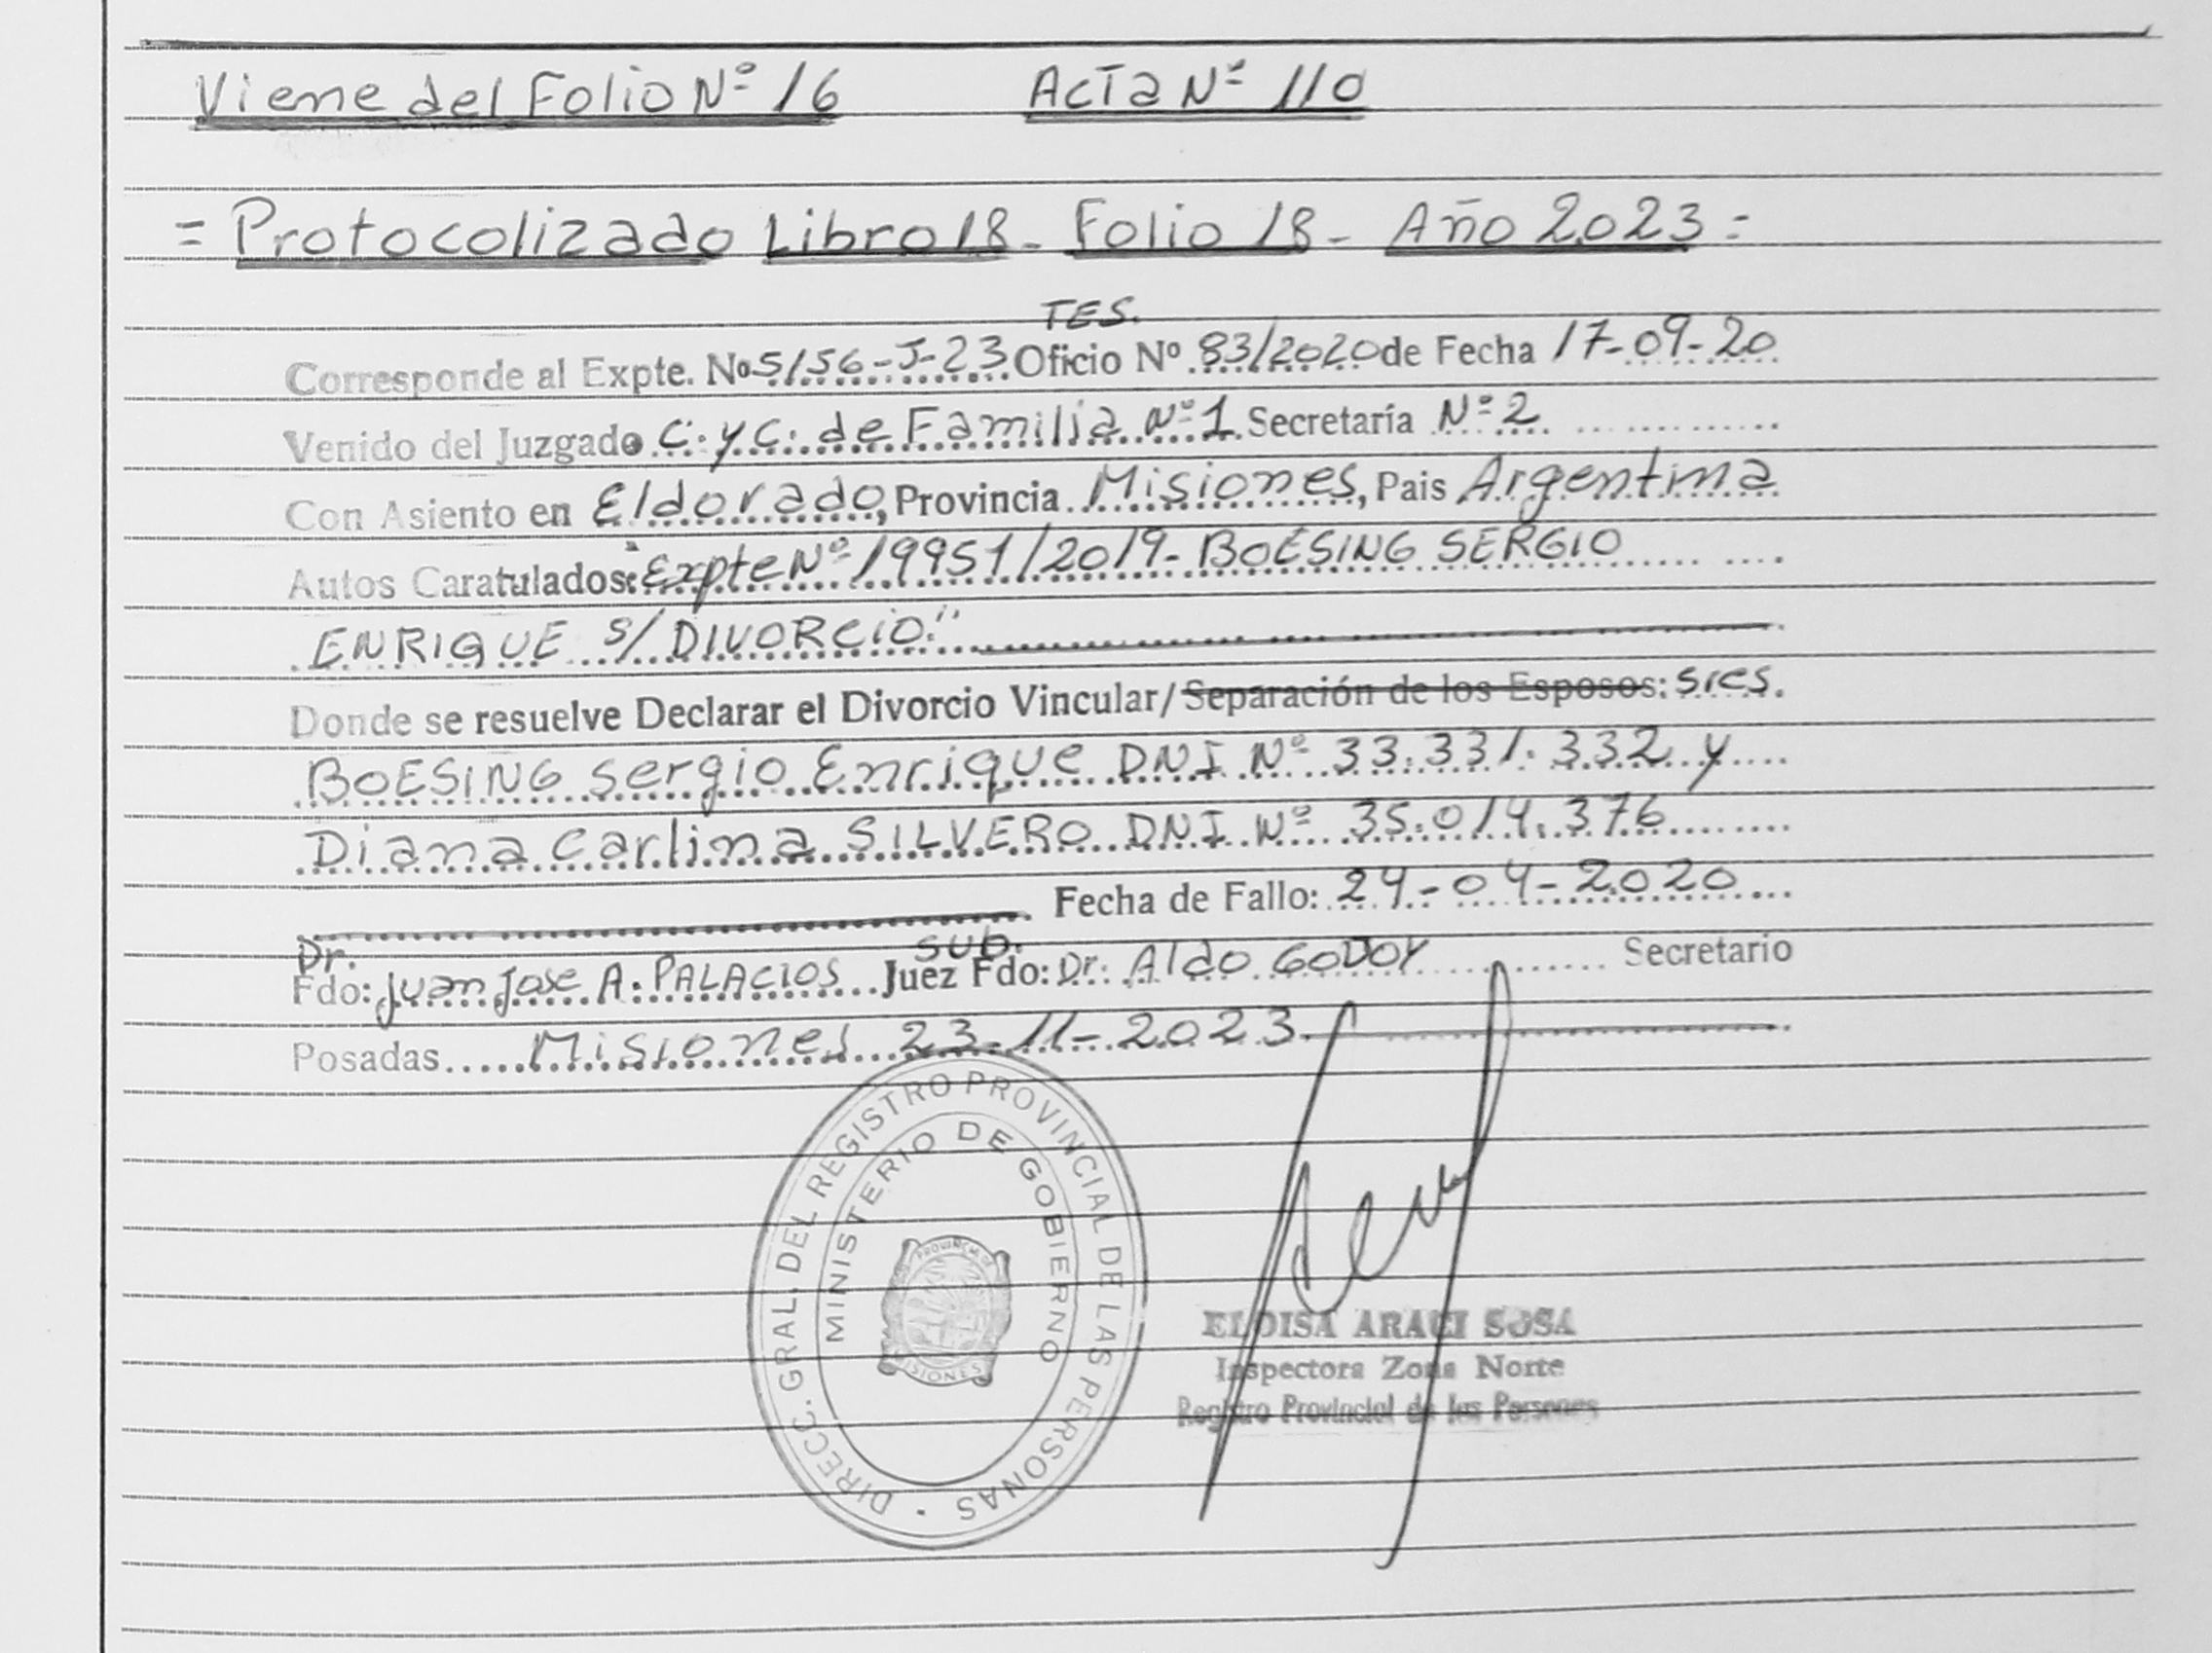 Viene del Folio Nº 16 Acta Nº 110
= Protocolizado Libro 18 - Folio 18 - Año 2023 =
TES.
Corresponde al Expte. No 5156-J-23 Oficio Nº 83/2020 de Fecha 17-09-20
Venido del Juzgado C. y C. de Familia Nº 1 Secretaría Nº 2
Con Asiento en Eldorado, Provincia Misiones, Pais Argentina
Autos Caratulados: "Expte Nº 19951/2019- BOESING SERGIO
ENRIQUE S/ DIVORCIO."
Donde se resuelve Declarar el Divorcio Vincular/Separación de los Esposos: sres.
BOESING Sergio Enrique DNI Nº 33.331.332 y
Diana Carlina SILVERO DNI Nº 35.014.376
Fecha de Fallo: 24-04-2020
Dr. sub.
Fdo: Juan Jose A. PALACIOS Juez Fdo: Dr. Aldo GODOY Secretario
Posadas Misiones 23-11-2023
DIRECC. GRAL. DEL REGISTRO PROVINCIAL DE LAS PERSONAS
MINISTERIO DE GOBIERNO
PROVINCIA DE
MISIONES
ELOISA ARACI SOSA
Inspectora Zona Norte
Registro Provincial de las Personas